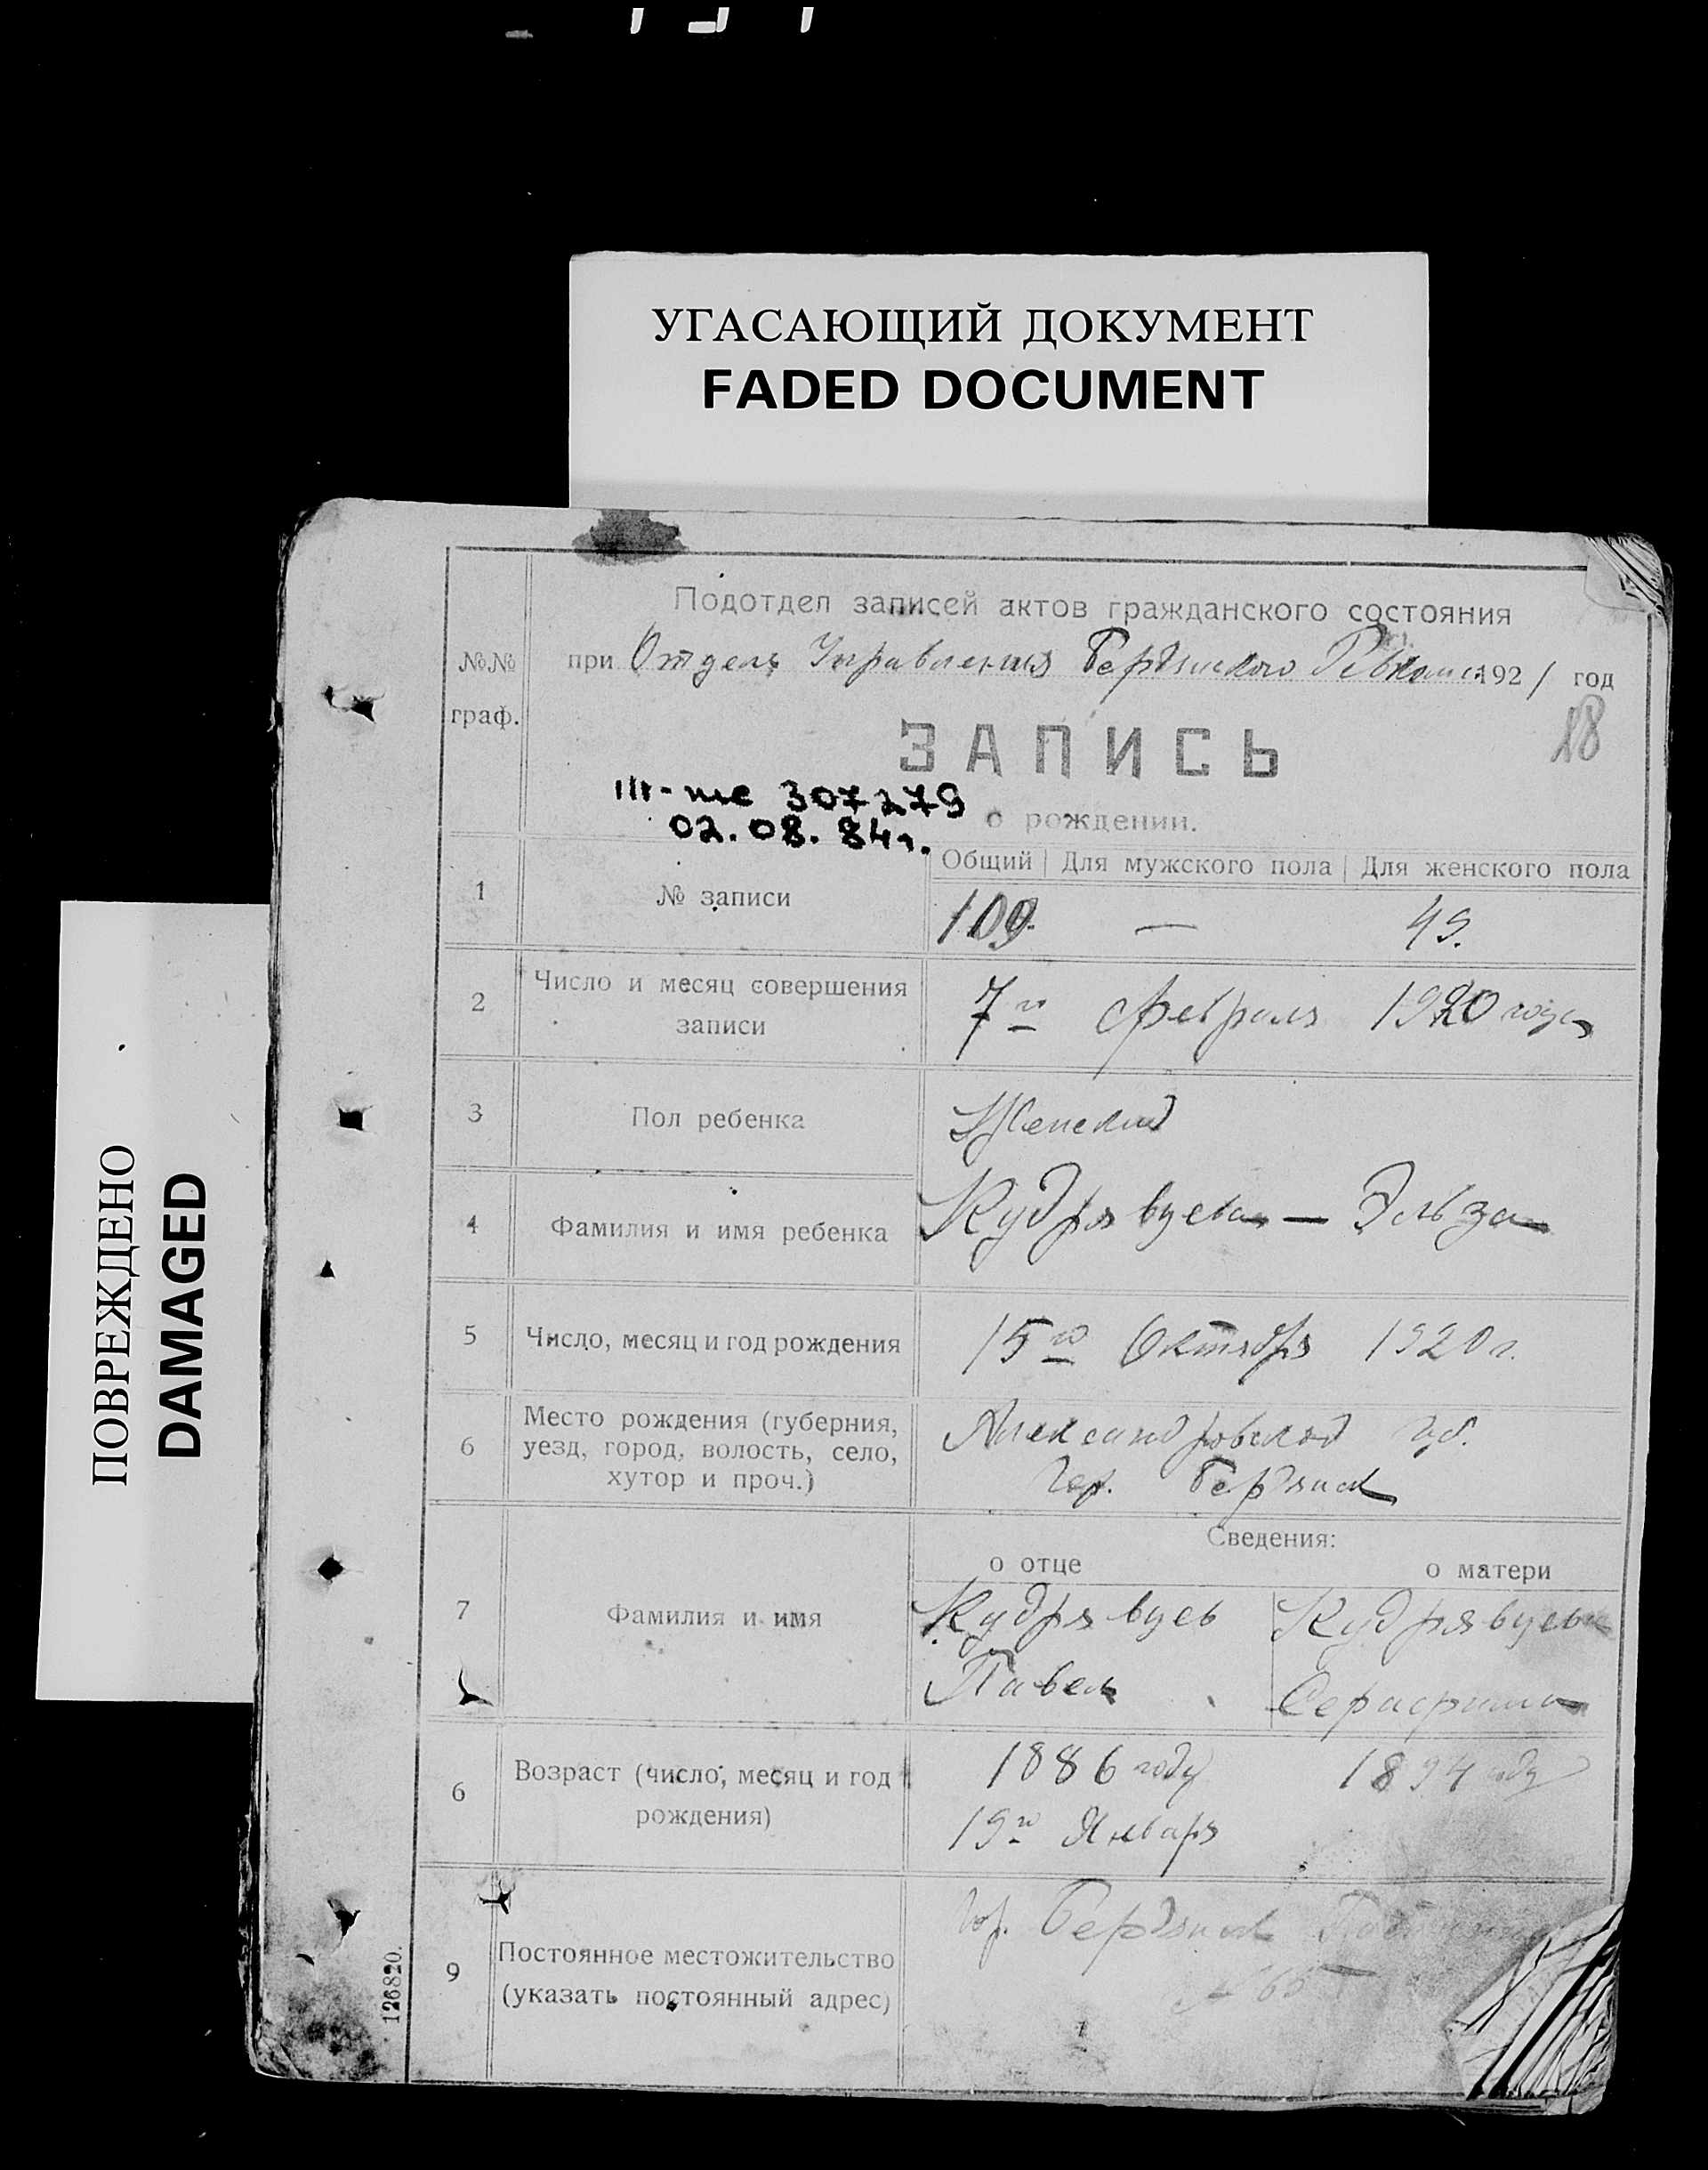 УГАСАЮЩИЙ ДОКУМЕНТ
FADED DOCUMENT
ПОВРЕЖДЕНО
DAMAGED
Подотдел записей актов гражданского состояния
№№ граф.
при Отделе Управления Бердянского Ревкома 1921 год
18
ЗАПИСЬ
III-же 307279
02.08.84г.
о рождении.
Общий | Для мужского пола | Для женского пола
1 № записи 109. — 49.
2 Число и месяц совершения записи 7го февраля 1920 года
3 Пол ребенка Женский
4 Фамилия и имя ребенка Кудрявцева — Эльза
5 Число, месяц и год рождения 15го Октября 1920 г.
6 Место рождения (губерния,
уезд, город, волость, село,
хутор и проч.)
Александровской губ.
гор. Бердянск
Сведения:
о отце о матери
7 Фамилия и имя
Кудрявцев Кудрявцева
Павел Серафима
6 Возраст (число, месяц и год рождения)
1886 году 1894 году
19го Января
9 Постоянное местожительство
(указать постоянный адрес)
гор. Бердянск
№ 65
126820.